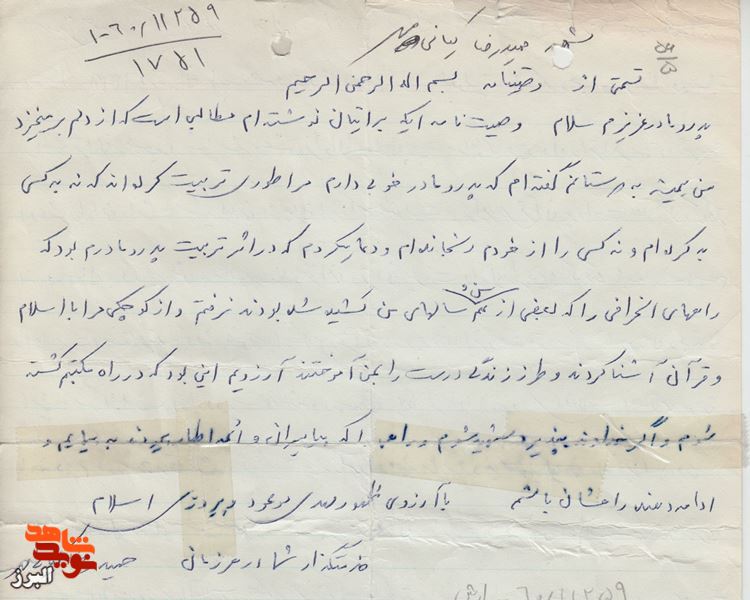 ۱-۶۰/۱۱۲۵۹
۱۷۵۱
شهید حمیدرضا کیانی
قسمتی از وصیتنامه بسم الله الرحمن الرحیم
پدر و مادر عزیزم سلام وصیت نامه ایکه برایتان نوشته ام مطالبی است که از دلم بر میخیزد
من همیشه به دوستانم گفته ام که پدر و مادر خوبی دارم مرا طوری تربیت کرده اند که نه به کسی
بد کرده ام و نه کسی را از خودم رنجانده ام و دعا میکردم که در اثر تربیت پدر و مادرم بود که
راههای انحرافی را که بعضی از هم سن و سالهای من کشیده شده بودند نرفتم و از کوچکی مرا با اسلام
و قرآن آشنا کردند و طرز زندگی درست را بمن آموختند آرزویم این بود که در راه مکتبم کشته
شوم و اگر خداوند بپذیرد شهید شوم و راهی را که پیامبران و ائمه اطهار پیمودند به پیمایم و
ادامه دهنده راهشان باشم با آرزوی ظهور مهدی موعود و پیروزی اسلام
خدمتگذار شما
شاهد
نوید
البرز
۶۰/۱۱۲۵۹